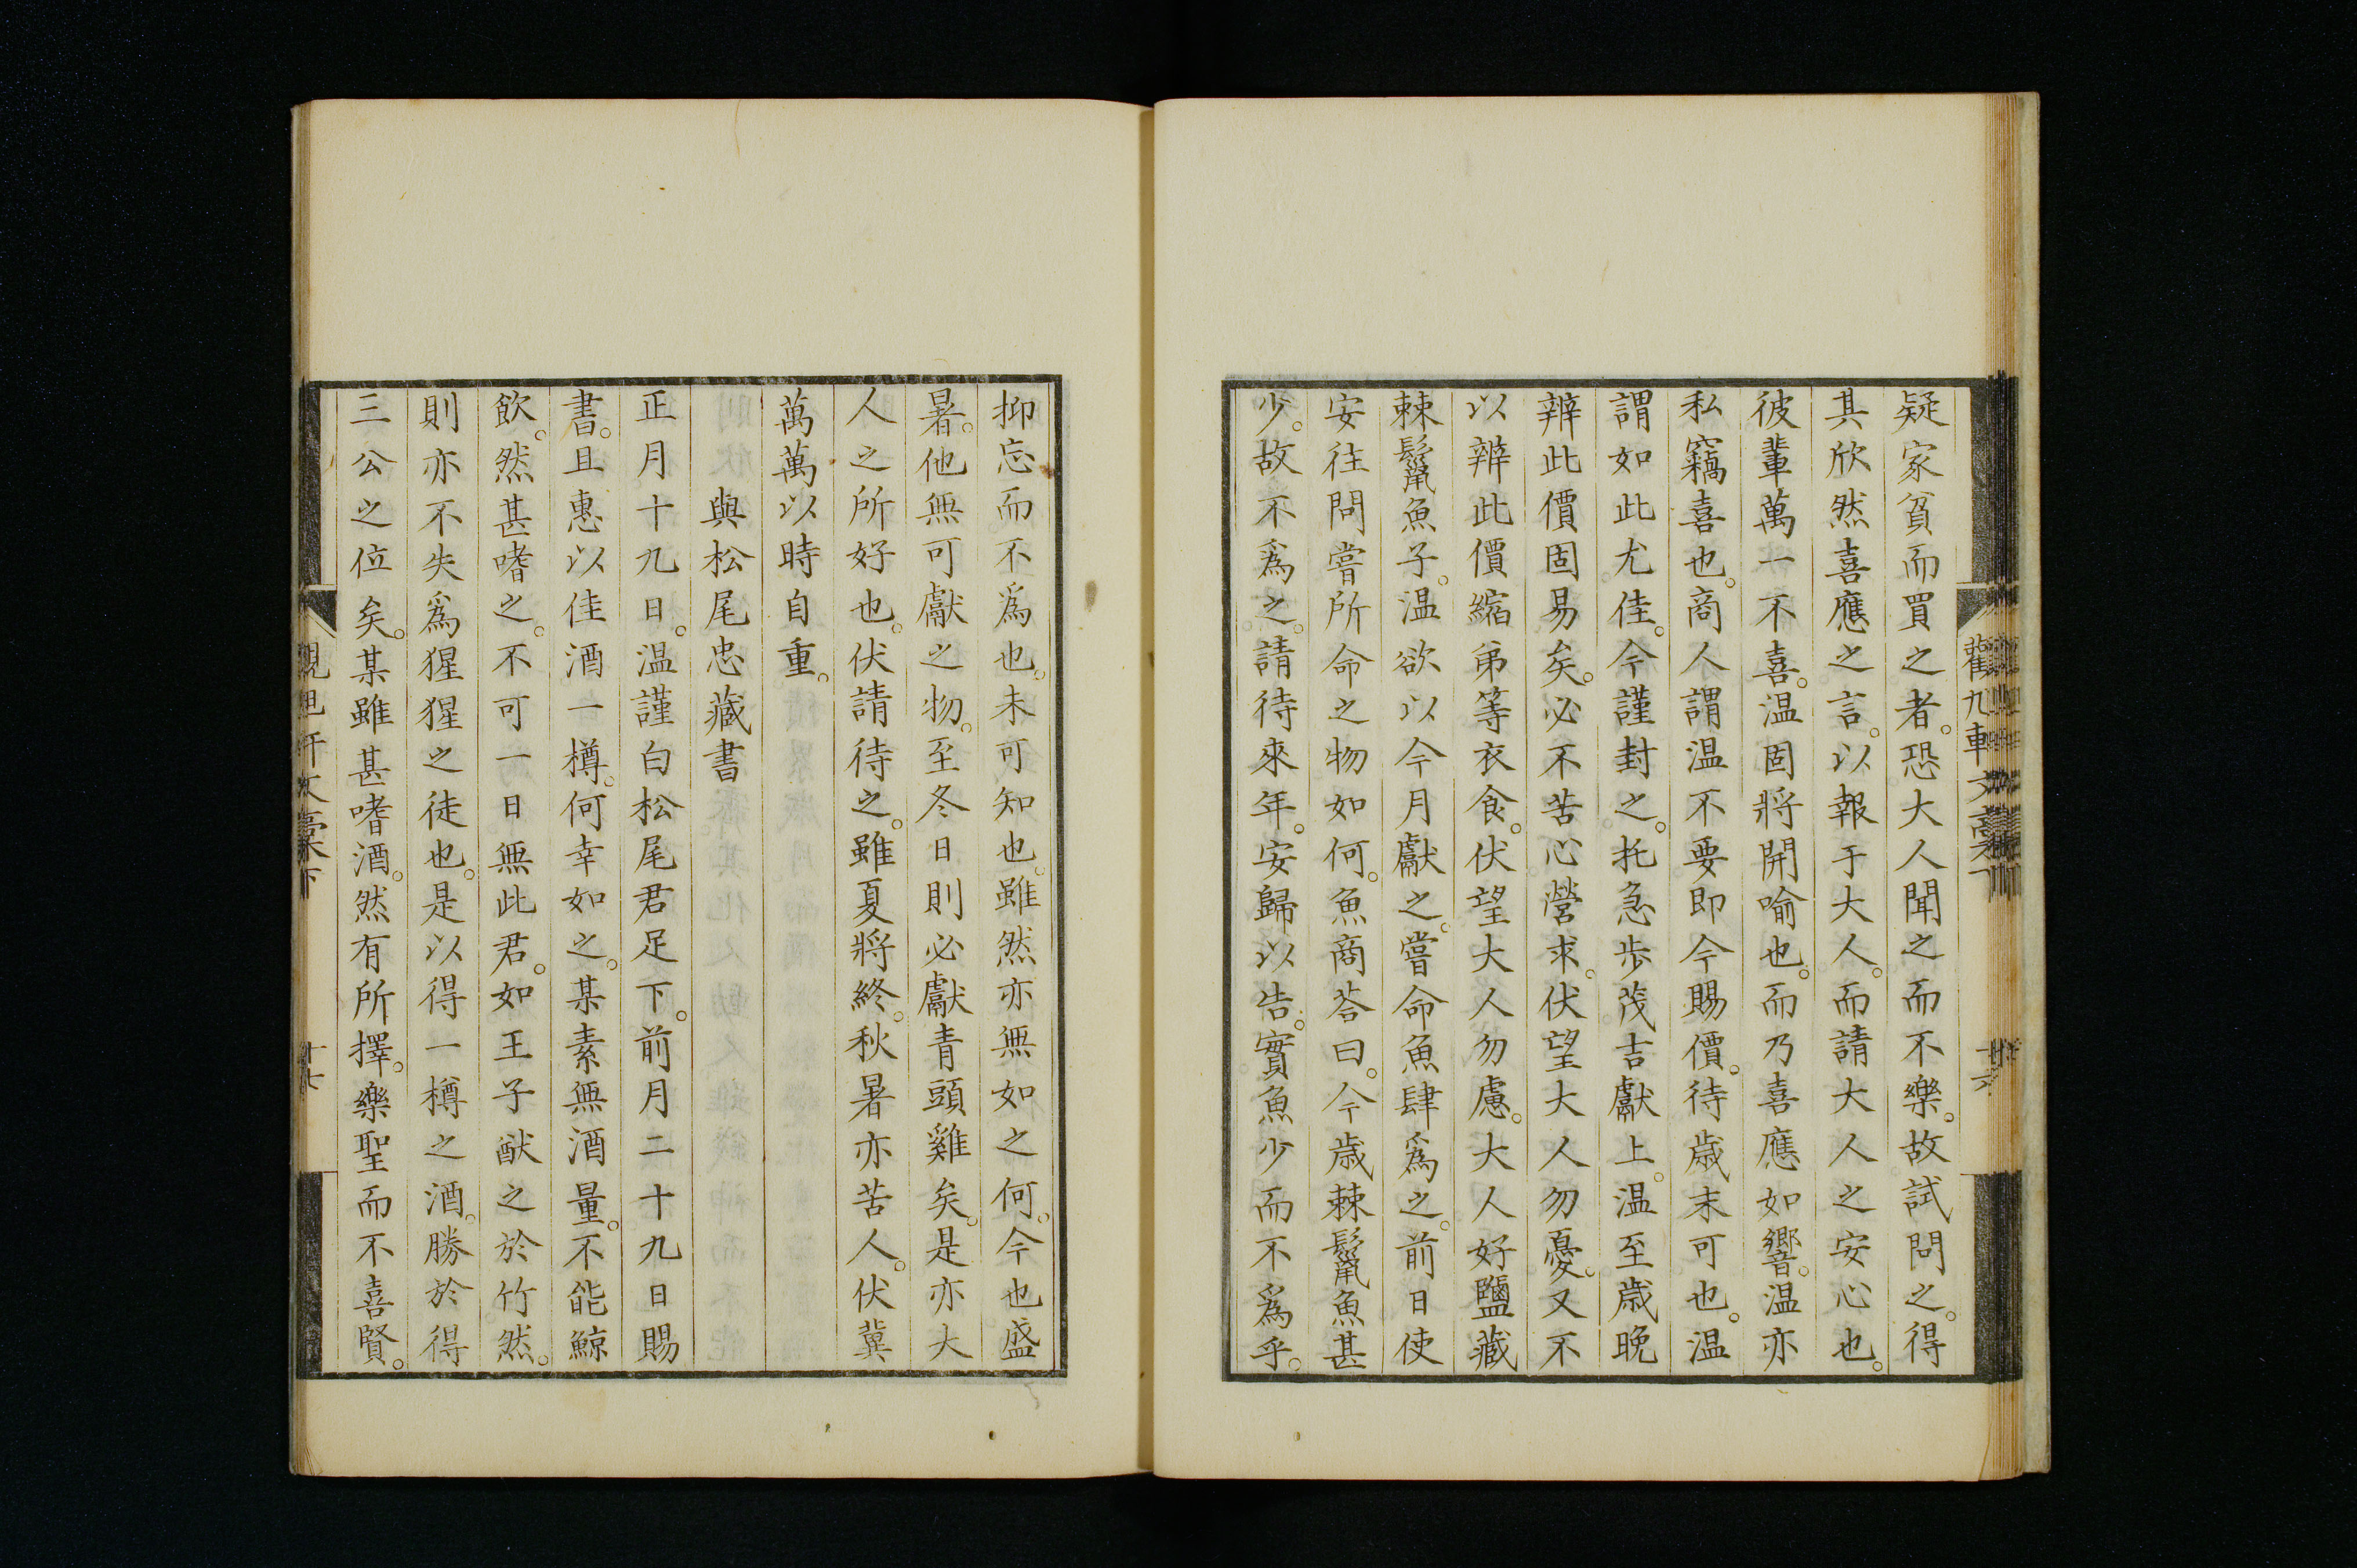 疑家貧而買之者。恐大人聞之而不樂。故試問之。得
其欣然喜應之言。以報于大人。而請大人之安心也。
彼輩萬一不喜。温固將開喻也。而乃喜應如響。温亦
私竊喜也。商人謂温不要即今賜價。待歳末可也。温
謂如此尤佳。今謹封之。托急歩茂吉獻上。温至歳晩
辨此價固易矣。必不苦心營求。伏望大人勿憂。又不
以辨此價縮弟等衣食。伏望大人勿慮。大人好鹽藏
棘鬣魚子。温欲以今月獻之。嘗命魚肆爲之。前日使
安往問嘗所命之物如何。魚商荅曰。今歳棘鬣魚甚
少。故不爲之。請待來年。安歸以告。實魚少而不爲乎。
抑忘而不爲也。未可知也。雖然亦無如之何。今也盛
暑。他無可獻之物。至冬日則必獻青頭雞矣。是亦大
人之所好也。伏請待之。雖夏將終。秋暑亦苦人。伏冀
萬萬以時自重。
與松尾忠藏書
正月十九日。温謹白松尾君足下。前月二十九日賜
書。且惠以佳酒一樽。何幸如之。某素無酒量。不能鯨
飲。然甚嗜之。不可一日無此君。如王子猷之於竹然。
則亦不失爲猩猩之徒也。是以得一樽之酒。勝於得
三公之位矣。某雖甚嗜酒。然有所擇。樂聖而不喜賢。
十七